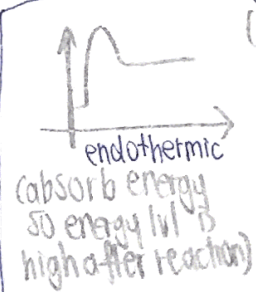 endothermic
(absorb energy
so energy lvl is
high after reaction)